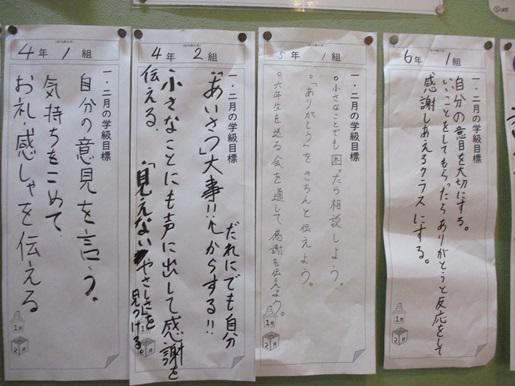 4年 1組
一・二月の学級目標
自分の意見を言う。
気持ちをこめて、
お礼・感しゃを伝える
1月
2月
4年 2組
一・二月の学級目標
「あいさつ」大事!!だれにでも自分
からする!!
小さなことにも声に出して感謝を
伝える。
「見えないやさしさを
見つける。
1月
2月
5年 1組
一・二月の学級目標
。小さなことでも困ったら相談しよう。
。「ありがとう」をきちんと伝えよう。
。六年生を送る会を通して感謝を伝えよう。
1月
2月
6年 1組
一・二月の学級目標
自分の を大切にする。
いいことをしてもらったらありがとうと反応をして
感謝しあえるクラスにする。
1月
2月